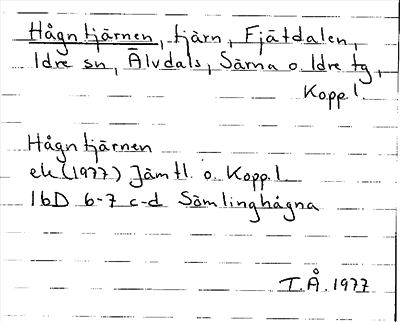 Hågntjärnen, tjärn, Fjätdalen,
Idre sn, Älvdals, Särna o. Idre tg,
Kopp.l.
Hågntjärnen
ek (1977) Jämtl. o. Kopp.l
16D 6-7 c-d Sömlinghågna
T.Å. 1977